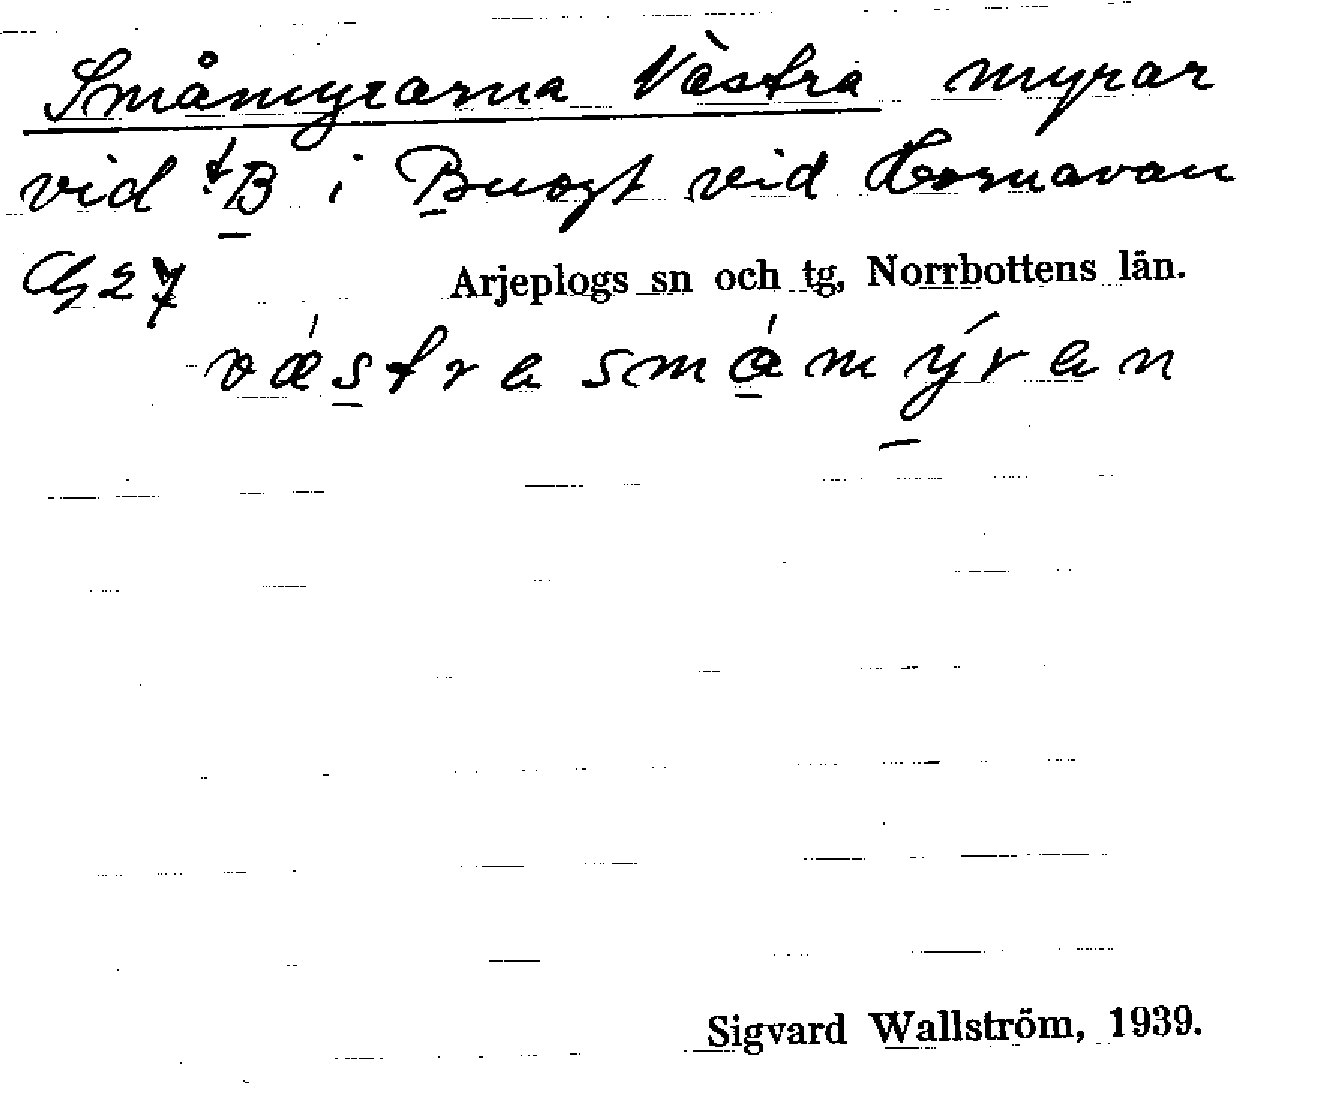 Småmyrarna Västra myrar
vid t.B i Buogt vid Hornavan
G 27 Arjeplogs sn och tg, Norrbottens län.
västra småmýran
Sigvard Wallström, 1939.